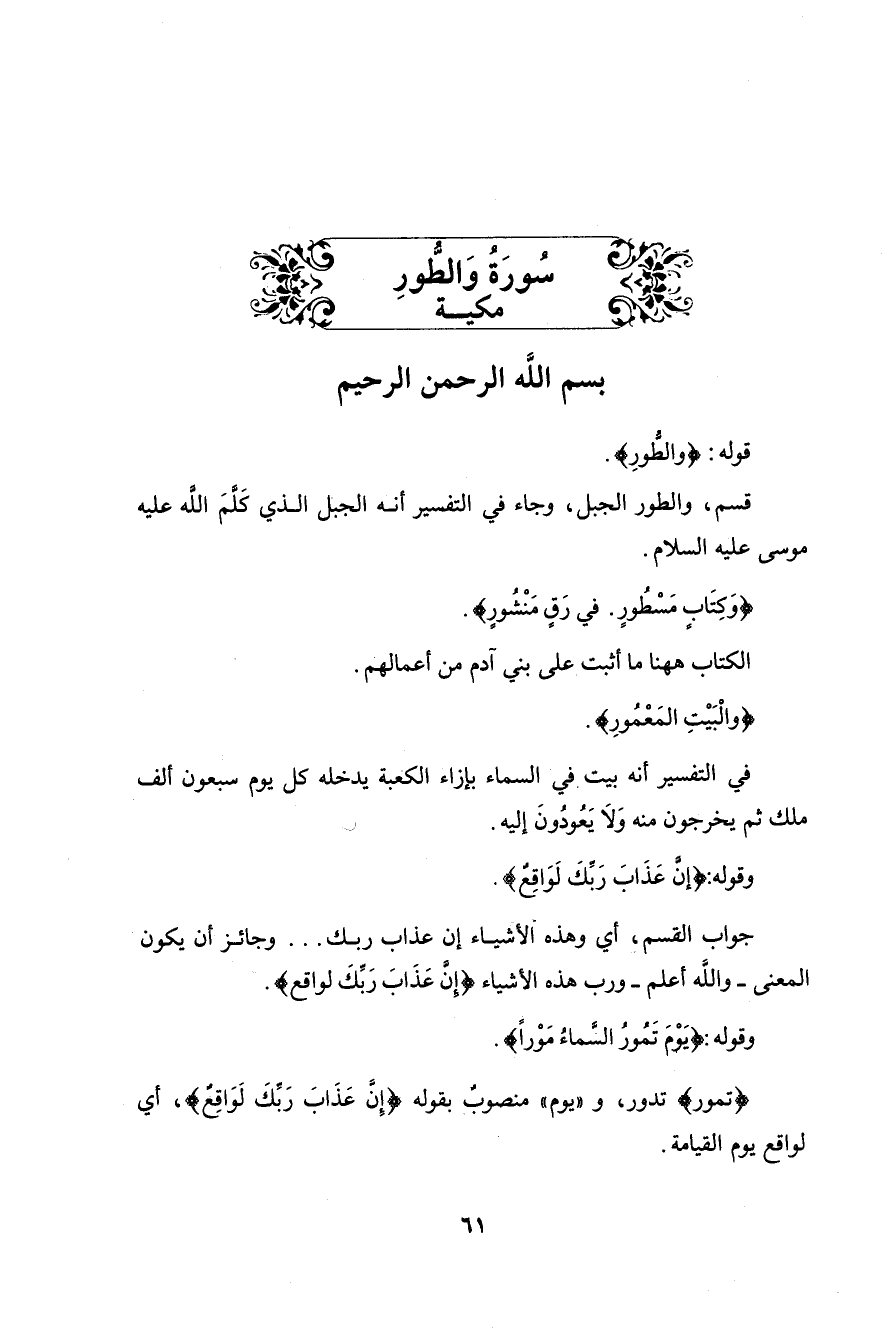 سُورَةُ وَالطُّورِ
مكيـــة
بسم اللَّه الرحمن الرحيم
قوله: ﴿والطُّورِ﴾.
قسم، والطور الجبل، وجاء في التفسير أنـه الجبل الـذي كَلَّمَ اللَّه عليه
موسى عليه السلام.
﴿وَكِتَابٍ مَسْطُورٍ. في رَقٍ مَنْشُورٍ﴾.
الكتاب ههنا ما أثبت على بني آدم من أعمالهم.
﴿والْبَيْتِ المَعْمُورِ﴾.
في التفسير أنه بيت في السماء بإزاء الكعبة يدخله كل يوم سبعون ألف
ملك ثم يخرجون منه وَلَا يَعُودُونَ إليه.
وقوله:﴿إنَّ عَذَابَ رَبِّكَ لَوَاقِعٌ﴾.
جواب القسم، أي وهذه الأشيـاء إن عذاب ربـك... وجائـز أن يكون
المعنى ـ واللَّه أعلم ـ ورب هذه الأشياء ﴿إِنَّ عَذَابَ رَبِّكَ لواقع﴾.
وقوله:﴿يَوْمَ تَمُورُ السَّماءُ مَوْراً﴾.
﴿تمور﴾ تدور، و «يوم» منصوبٌ بقوله ﴿إِنَّ عَذَابَ رَبِّكَ لَوَاقِعٌ﴾، أي
لواقع يوم القيامة.
٦١